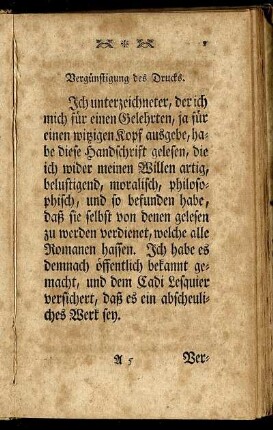 Vergünstigung des Drucks.
Ich unterzeichneter, der ich
mich für einen Gelehrten, ja für
einen witzigen Kopf ausgebe, ha-
be diese Handschrift gelesen, die
ich wider meinen Willen artig,
belustigend, moralisch, philoso-
phisch, und so befunden habe,
daß sie selbst von denen gelesen
zu werden verdienet, welche alle
Romanen hassen. Ich habe es
demnach öffentlich bekannt ge-
macht, und dem Cadi Lesquier
versichert, daß es ein abscheuli-
ches Werk sey.
A 5 Ver-